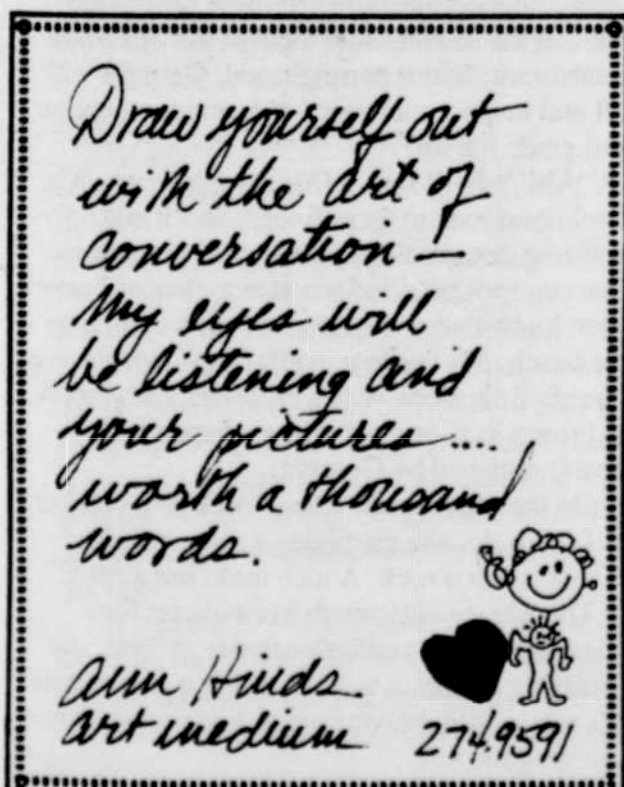 Draw yourself out
with the art of
conversation —
My eyes will
be listening and
your pictures ....
worth a thousand
words.
Ann Hinds
art medium 274.9591